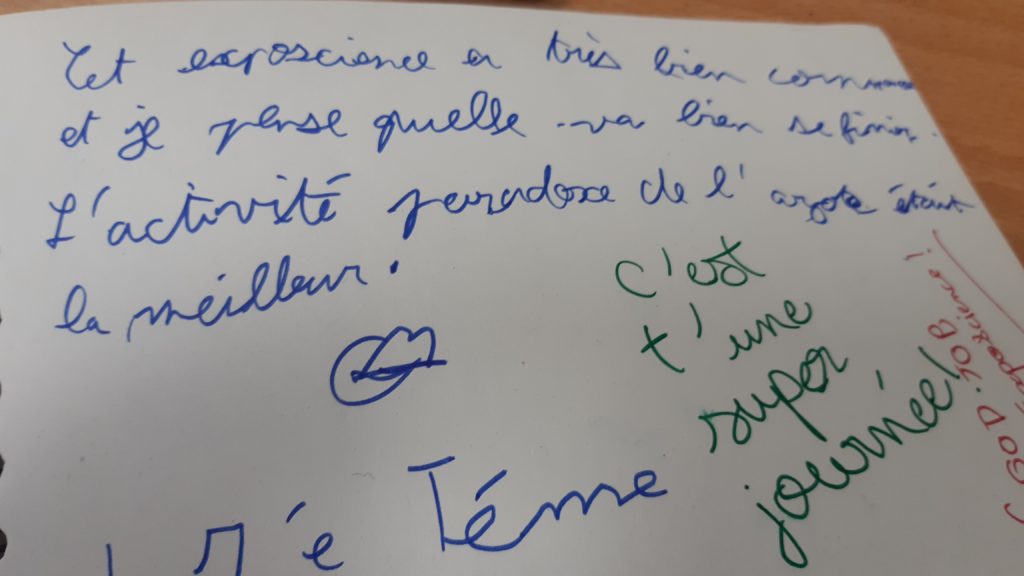 Cet exposcience a très bien
et je pense quelle va bien se finir.
L'activité paradoxe de l' azote était
la meilleur.
c'est
t'une
super
journée!
GOOD JOB
exposcience!
Téme